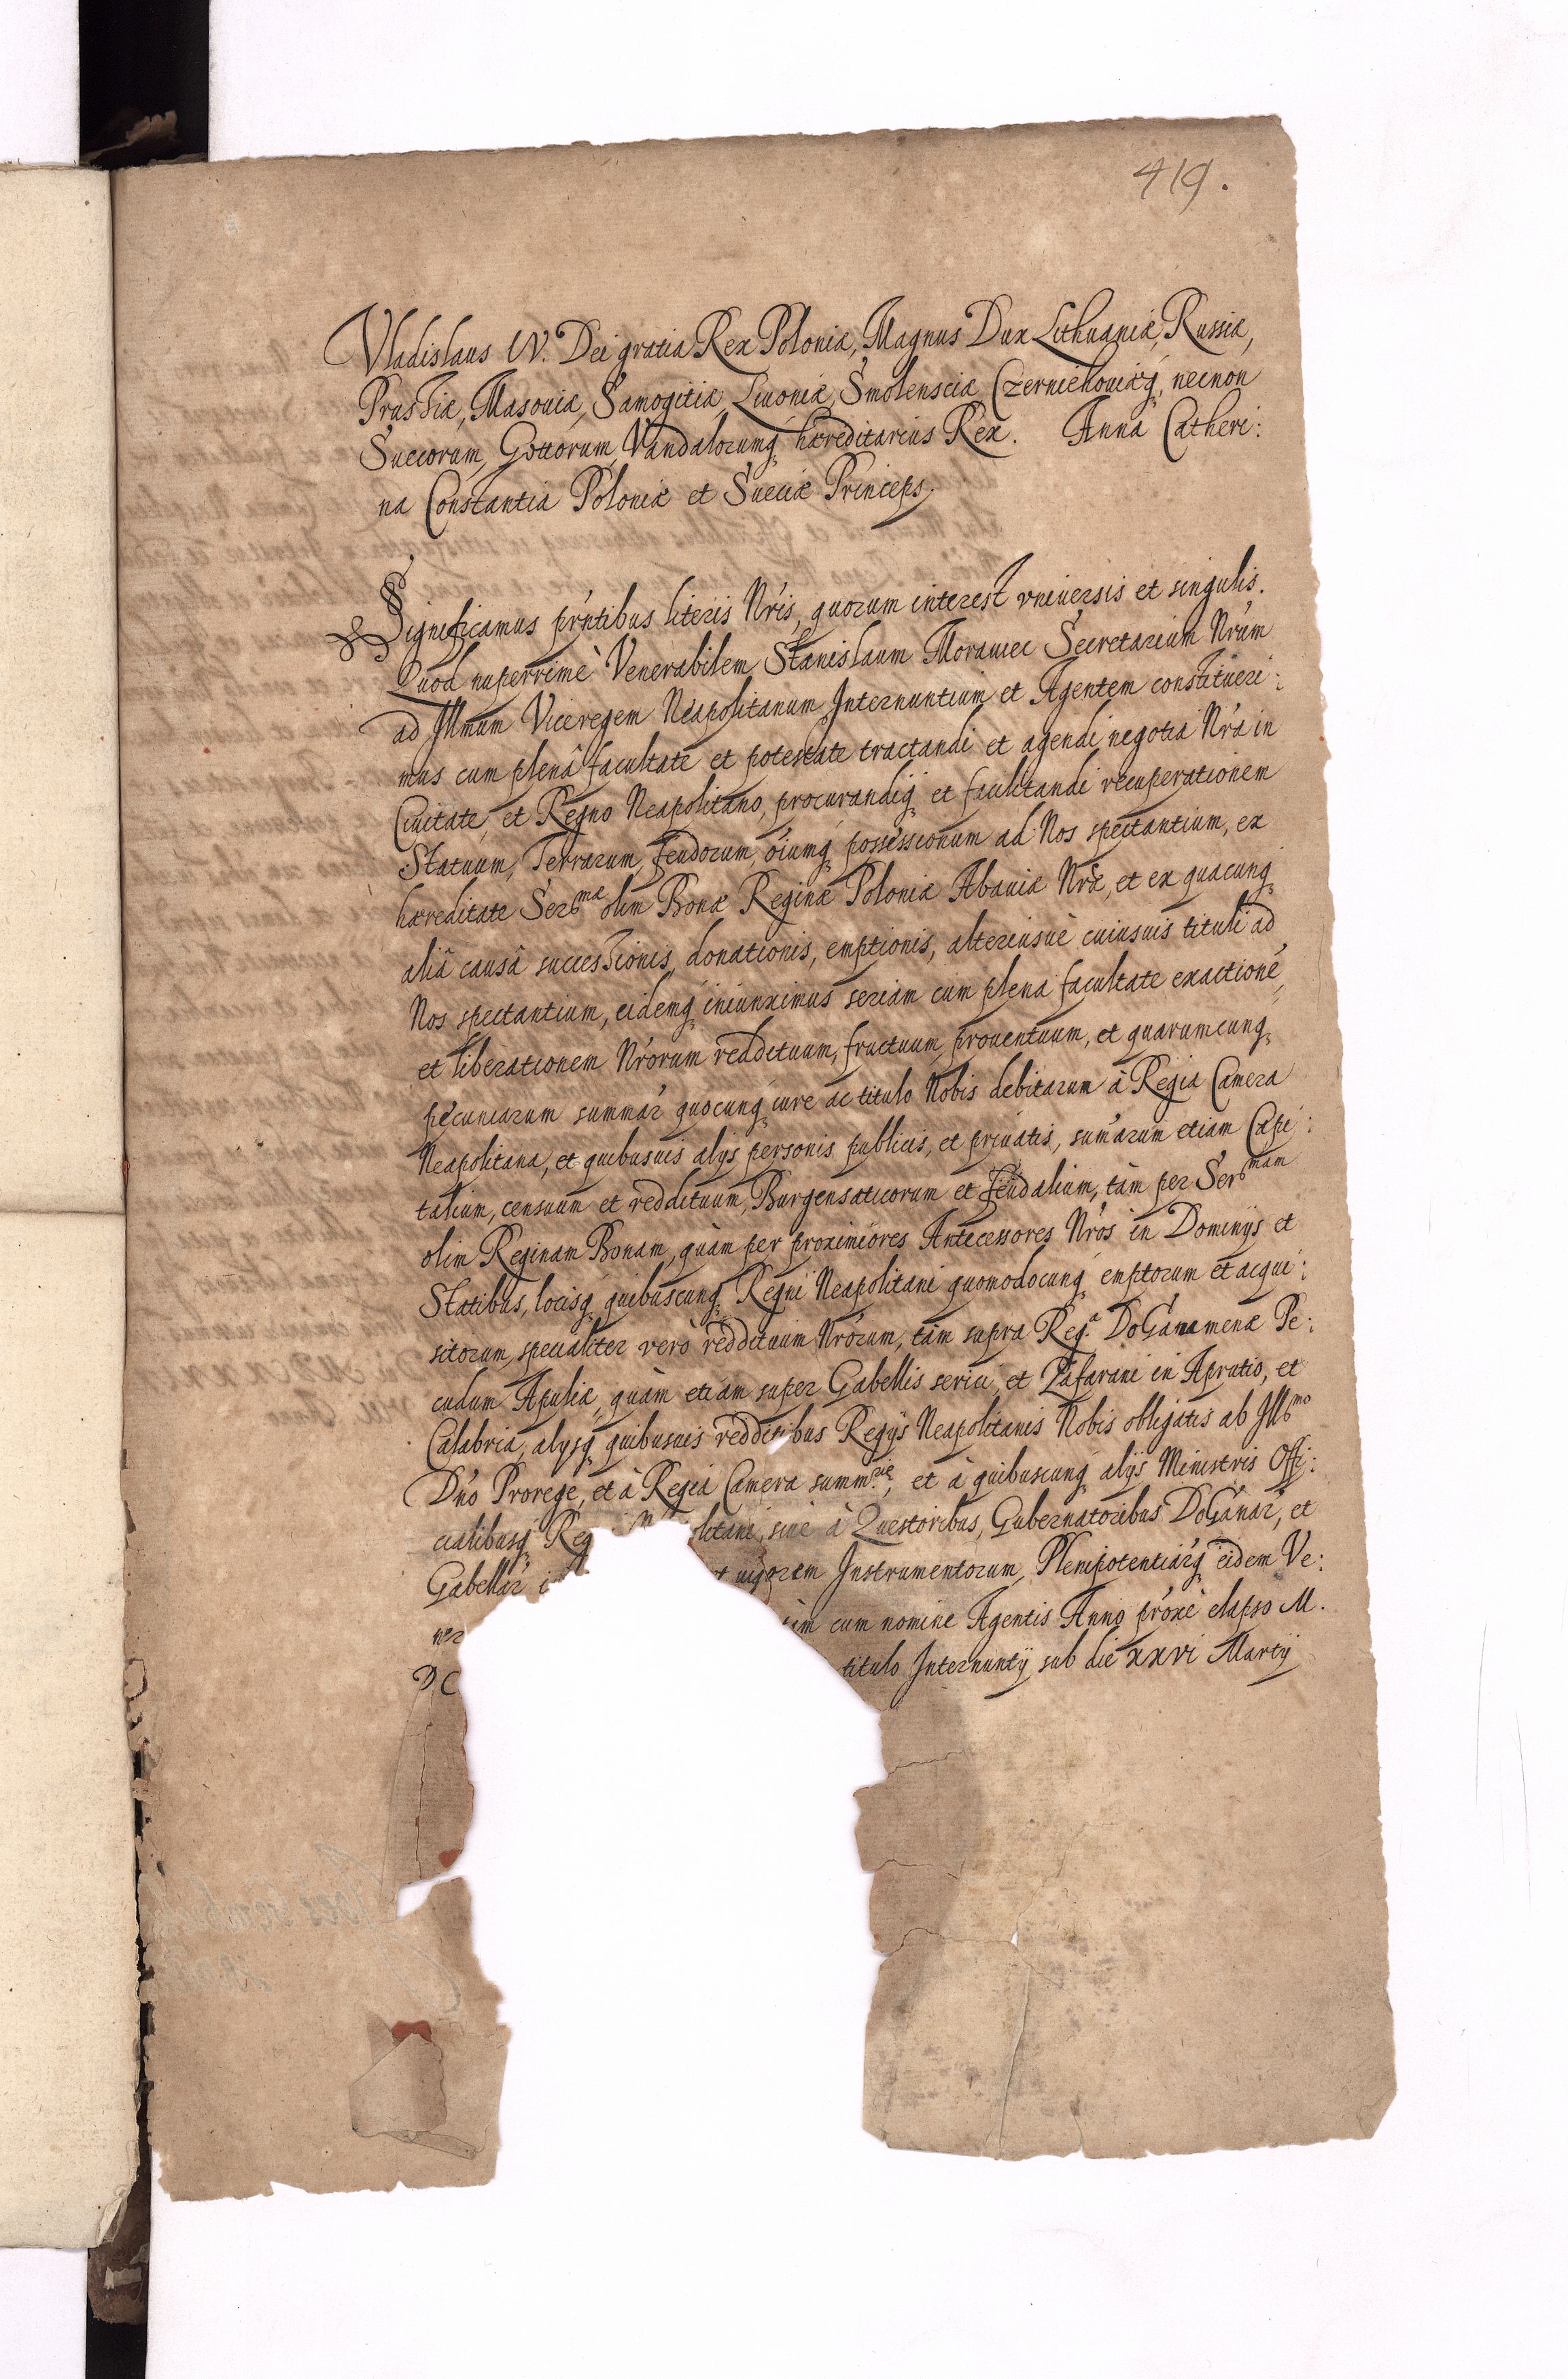 419.
Vladislaus IV. Dei gratia Rex Poloniæ, Magnus Dux Lithuaniæ, Russiæ,
Prussiæ, Masouiæ, Samogitiæ, Liuoniæ, Smolensciæ, Czerniehouiæq́, necnon
Suecorum, Gottorum, Vandalorumq́ hæreditarius Rex. Anna Catheri:
na Constantia Poloniæ et Sueciæ Princeps.
Significamus pr̃ntibus literis Nr̃is, quorum interest vniuersis et singulis.
Quod nuperrimè Venerabilem Stanislaum Morauiec Secretarium Nr̃um
ad Illmum Viceregem Neapolitanum Internuntium et Agentem constitueri:
mus cum plenâ facultate et potestate tractandi et agendi negotia Nr̃a in
Ciuitate, et Regno Neapolitano, procurandiq́ et facilitandi recuperationem
Statuum, Terrarum, feudorum, oiumq́ possessionum ad Nos spectantium, ex
hæreditate Serᵐæ olim Bonæ Reginæ Poloniæ Abauiæ Nr̃æ, et ex quacunq́
aliâ causâ successionis, donationis, emptionis, alteriusuè cuiusuis tituli ad
Nos spectantium, eidemq́ iniunximus seriam cum plena facultate exactionẽ,
et liberationem Nr̃orum reddituum, fructuum, prouentuum, et quarumcunq́
pecuniarum summar̃ quocunq́ iure ac titulo Nobis debitarum à Regia Camera
Neapolitana, et quibusuis alys personis publicis, et priuatis, sum̃arum etiam Capi:
talium, censuum et reddituum, Burgensaticorum et feudalium, tàm per Serᵐᵃᵐ
olim Reginam Bonam, quàm per proximiores Antecessores Nr̃os in Dominijs et
Statibus, locisq́ quibuscunq́ Regni Neapolitani quomodocunq́ emptorum et acqui:
sitorum, specialiter verò reddituum Nr̃orum, tàm supra Reg.ᵃ Dohana menæ Pe:
cudum Apuliæ, quàm etiam super Gabellis serici, et Zafarani in Aprutio, et
Calabria, alysq́ quibusuis redditibus Regijs Neapolitanis Nobis obligatis ab Illᵐᵒ
Dño Prorege, et à Regia Camera summ.ʳⁱᵉ, et à quibuscunq́ alijs Ministris Offi:
cialibusq́ Reg olitani, siue à Quæstoribus, Gubernatoribus Dohanar̃, et
Gabellar̃ et uigorem Instrumentorum, Plenipotentiar̃q́ eidem Ve:
ner cum nomine Agentis Anno proxè elapso M.
DC titulo Internuntij sub die xxvi Martij